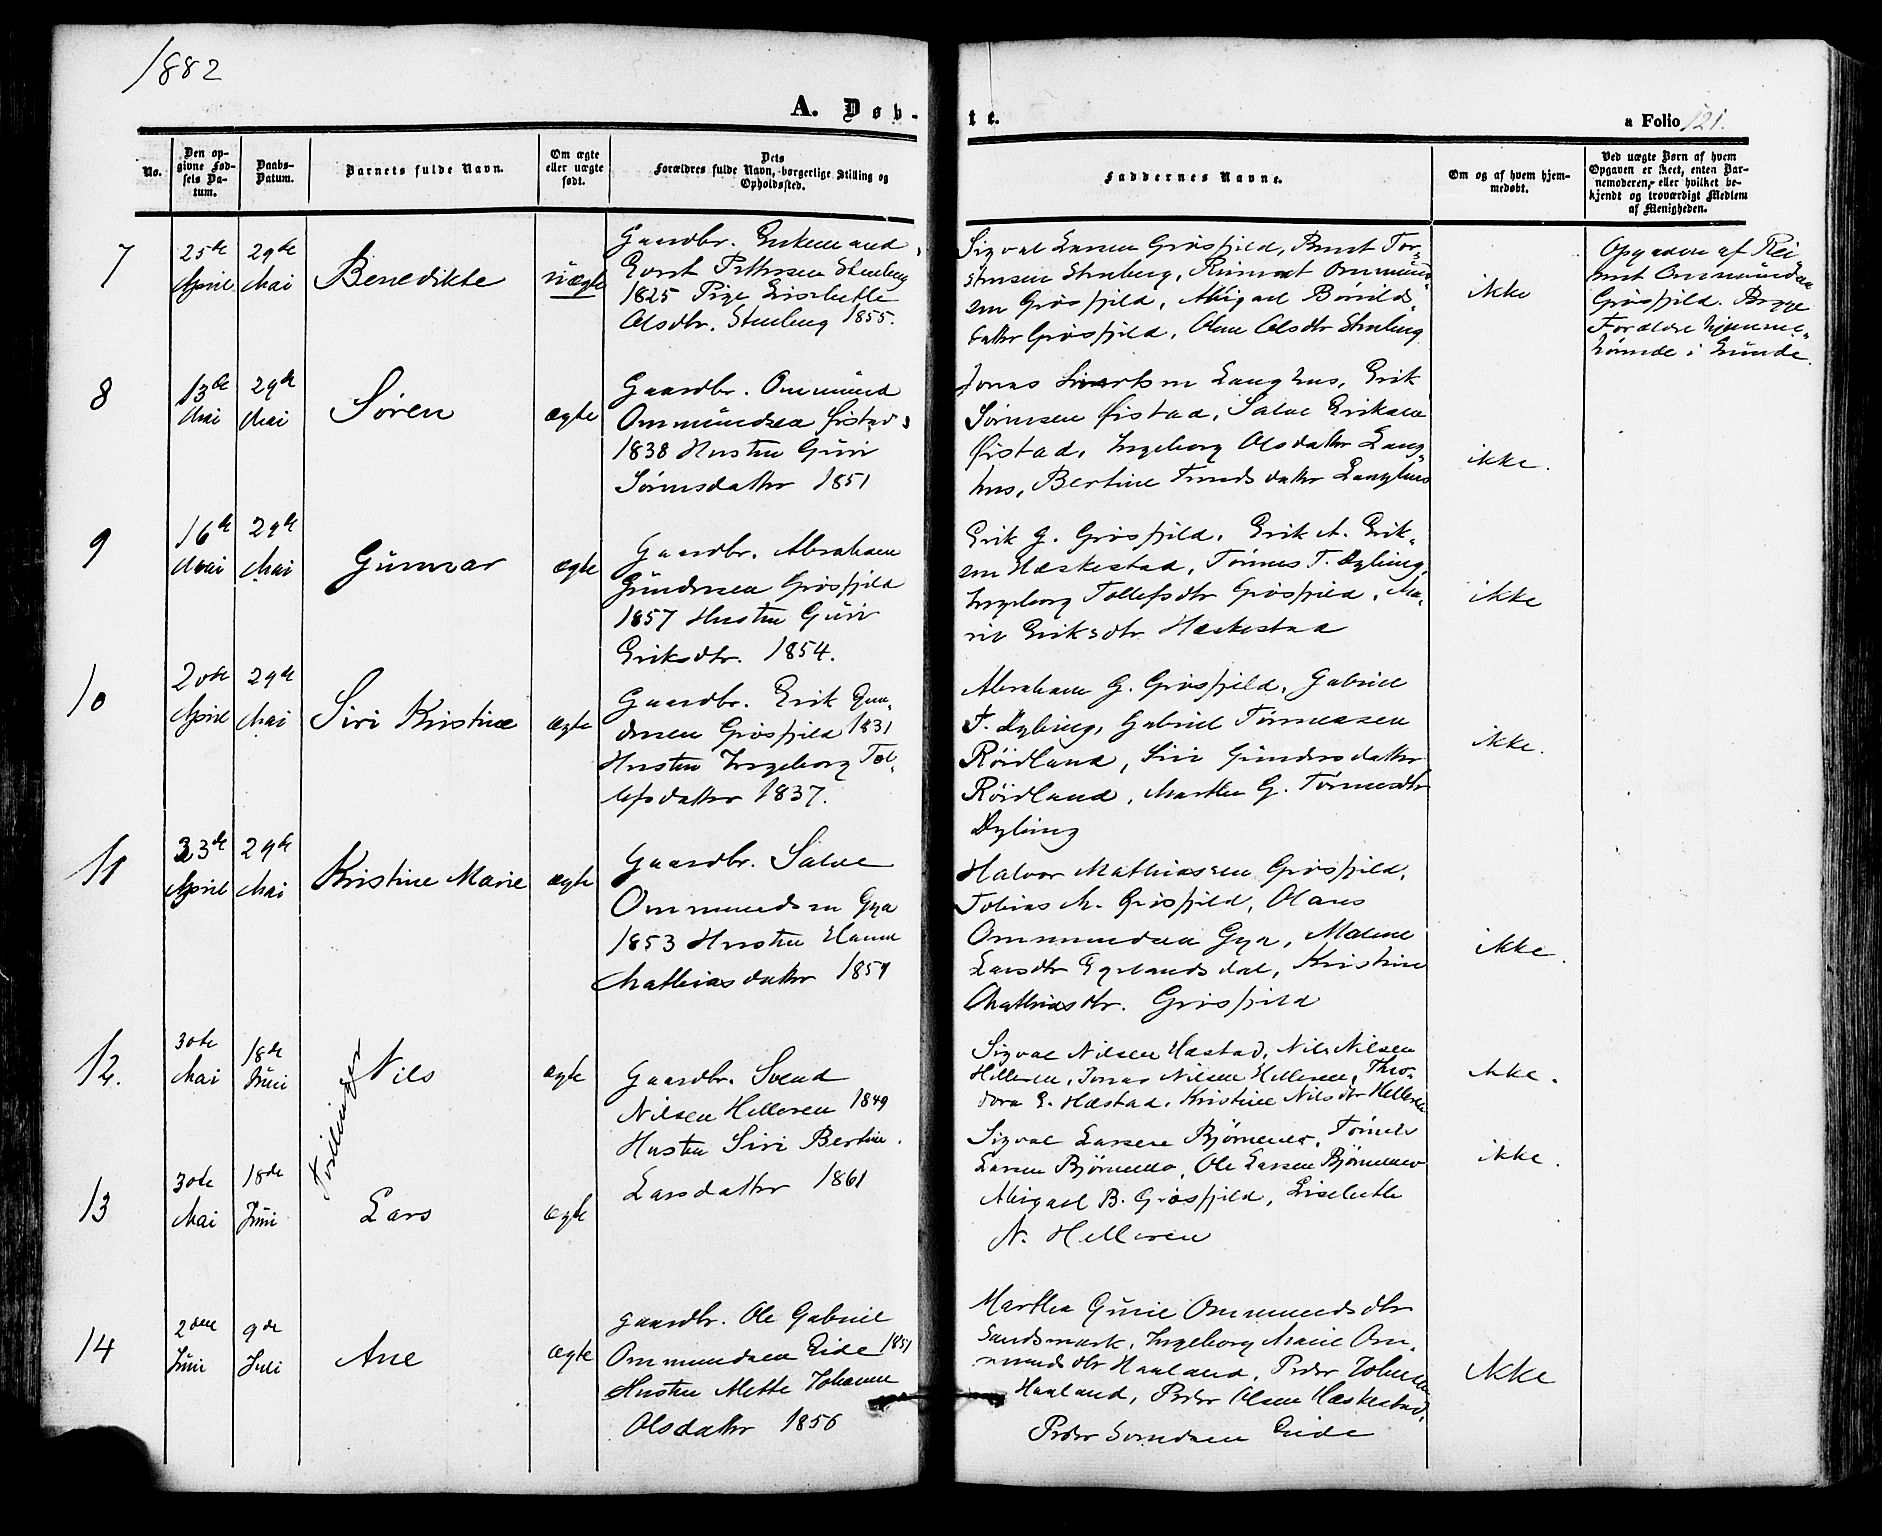 1882
A. Døb-
te.
a Folio 121.
No.
Den op-
givne Fød-
sels Da-
tum.
Daabs-
Datum.
Barnets fulde Navn.
Om ægte
eller uægte
født.
Dets
Forældres fulde Navn, borgerlige Stilling og
Opholdssted.
Faddernes Navne.
Om og af hvem hjem-
medøbt.
Ved uægte Børn af hvem
Opgaven er skeet, enten Bar-
nemoderen, eller hvilket be-
kjendt og troværdigt Medlem
af Menigheden.
7
25de
April
29de
Mai
Benedikte
uægte
Gaardbr. Enkemand
Pettersen Stenberg
1825 Pige Lisebette
Olsdtr. Stenberg 1855.
Sigval Larsen Grøsfjeld, Bernt Tor-
stensen Stenberg, Reimert Ommund-
sen Grøsfjeld, Abigael Børilds-
datter Grøsfjeld, Olene Olsdtr Stenberg
ikke
Opgaven af Rei
mert Ommundsen
Grøsfjeld. Begge
Forældre hjemme-
hørende i Lunde.
8
13de
Mai
29de
Mai
Søren
ægte
Gaardbr. Ommund
Ommundsen Ørstad
1838 Hustru Guri
Sørensdatter 1851
Jonas Sivertsen Langhus, Erik
Sørensen Ørstad, Salve Eriksen
Ørstad, Ingeborg Olsdatter Lang-
hus, Bertine datter Langhus
ikke.
9
16de
Mai
29de
Mai
Gunvar
ægte
Gaardbr. Abraham
Gundersen Grøsfjeld
1857 Hustru Guri
Eriksdtr. 1854.
Erik G. Grøsfjeld, Erik A. Erik-
sen Hæskestad, Tønnes T. Dybing,
Ingeborg Tollefsdtr Grøsfjeld, Ma-
rie Eriksdtr Hæskestad
ikke
10
20de
April
29de
Mai
Siri Kristine
ægte
Gaardbr. Erik Gun-
dersen Grøsfjeld 1831
Hustru Ingeborg Tol-
lefsdatter 1837.
Abraham G. Grøsfjeld, Gabriel
T. Dybing, Gabriel Tønnessen
Røidland, Siri Gundersdatter
Røidland, Marthe G. Tønnesdtr
Dybing
ikke.
11
23de
April
29de
Mai
Kristine Marie
ægte
Gaardbr. Salve
Ommundsen Gya
1853 Hustru Hanne
Mathiasdatter 1857
Halvor Mathiassen Grøsfjeld,
Tobias M. Grøsfjeld, Olaus
Ommundsen Gya, Malene
Larsdtr Egelandsdal, Kristine
Mathiasdtr. Grøsfjeld
ikke.
12.
30te
Mai
18de
Juni
Tvillinger
Nils
ægte
Gaardbr. Svend
Nilsen Helleren 1849
Hustru Siri Bertine
Larsdatter 1861
Sigval Nilsen Hæstad, Nils Nilsen
Helleren, Jonas Nilsen Helleren, Theo-
dora E. Hæstad, Kristine Nilsdtr Helleren
ikke.
13
30te
Mai
18de
Juni
Lars
ægte
Sigval Larsen Bjørnemo, Tønnes
Larsen Bjørnemo, Ole Larsen Bjørnemo
Abigael B. Grøsfjeld, Lisebette
N. Helleren
ikke.
14
2den
Juni
9de
Juli
Ane
ægte
Gaardbr. Ole Gabriel
Ommundsen Eide 1851
Hustru Mette Johanne
Olsdatter 1856
Martha Gurie Ommundsdtr
Sandsmark, Ingeborg Marie Om-
mundsdtr Haaland, Peder Johnsen
Haaland, Peder Olsen Hæskestad,
Peder Svendsen Eide
ikke